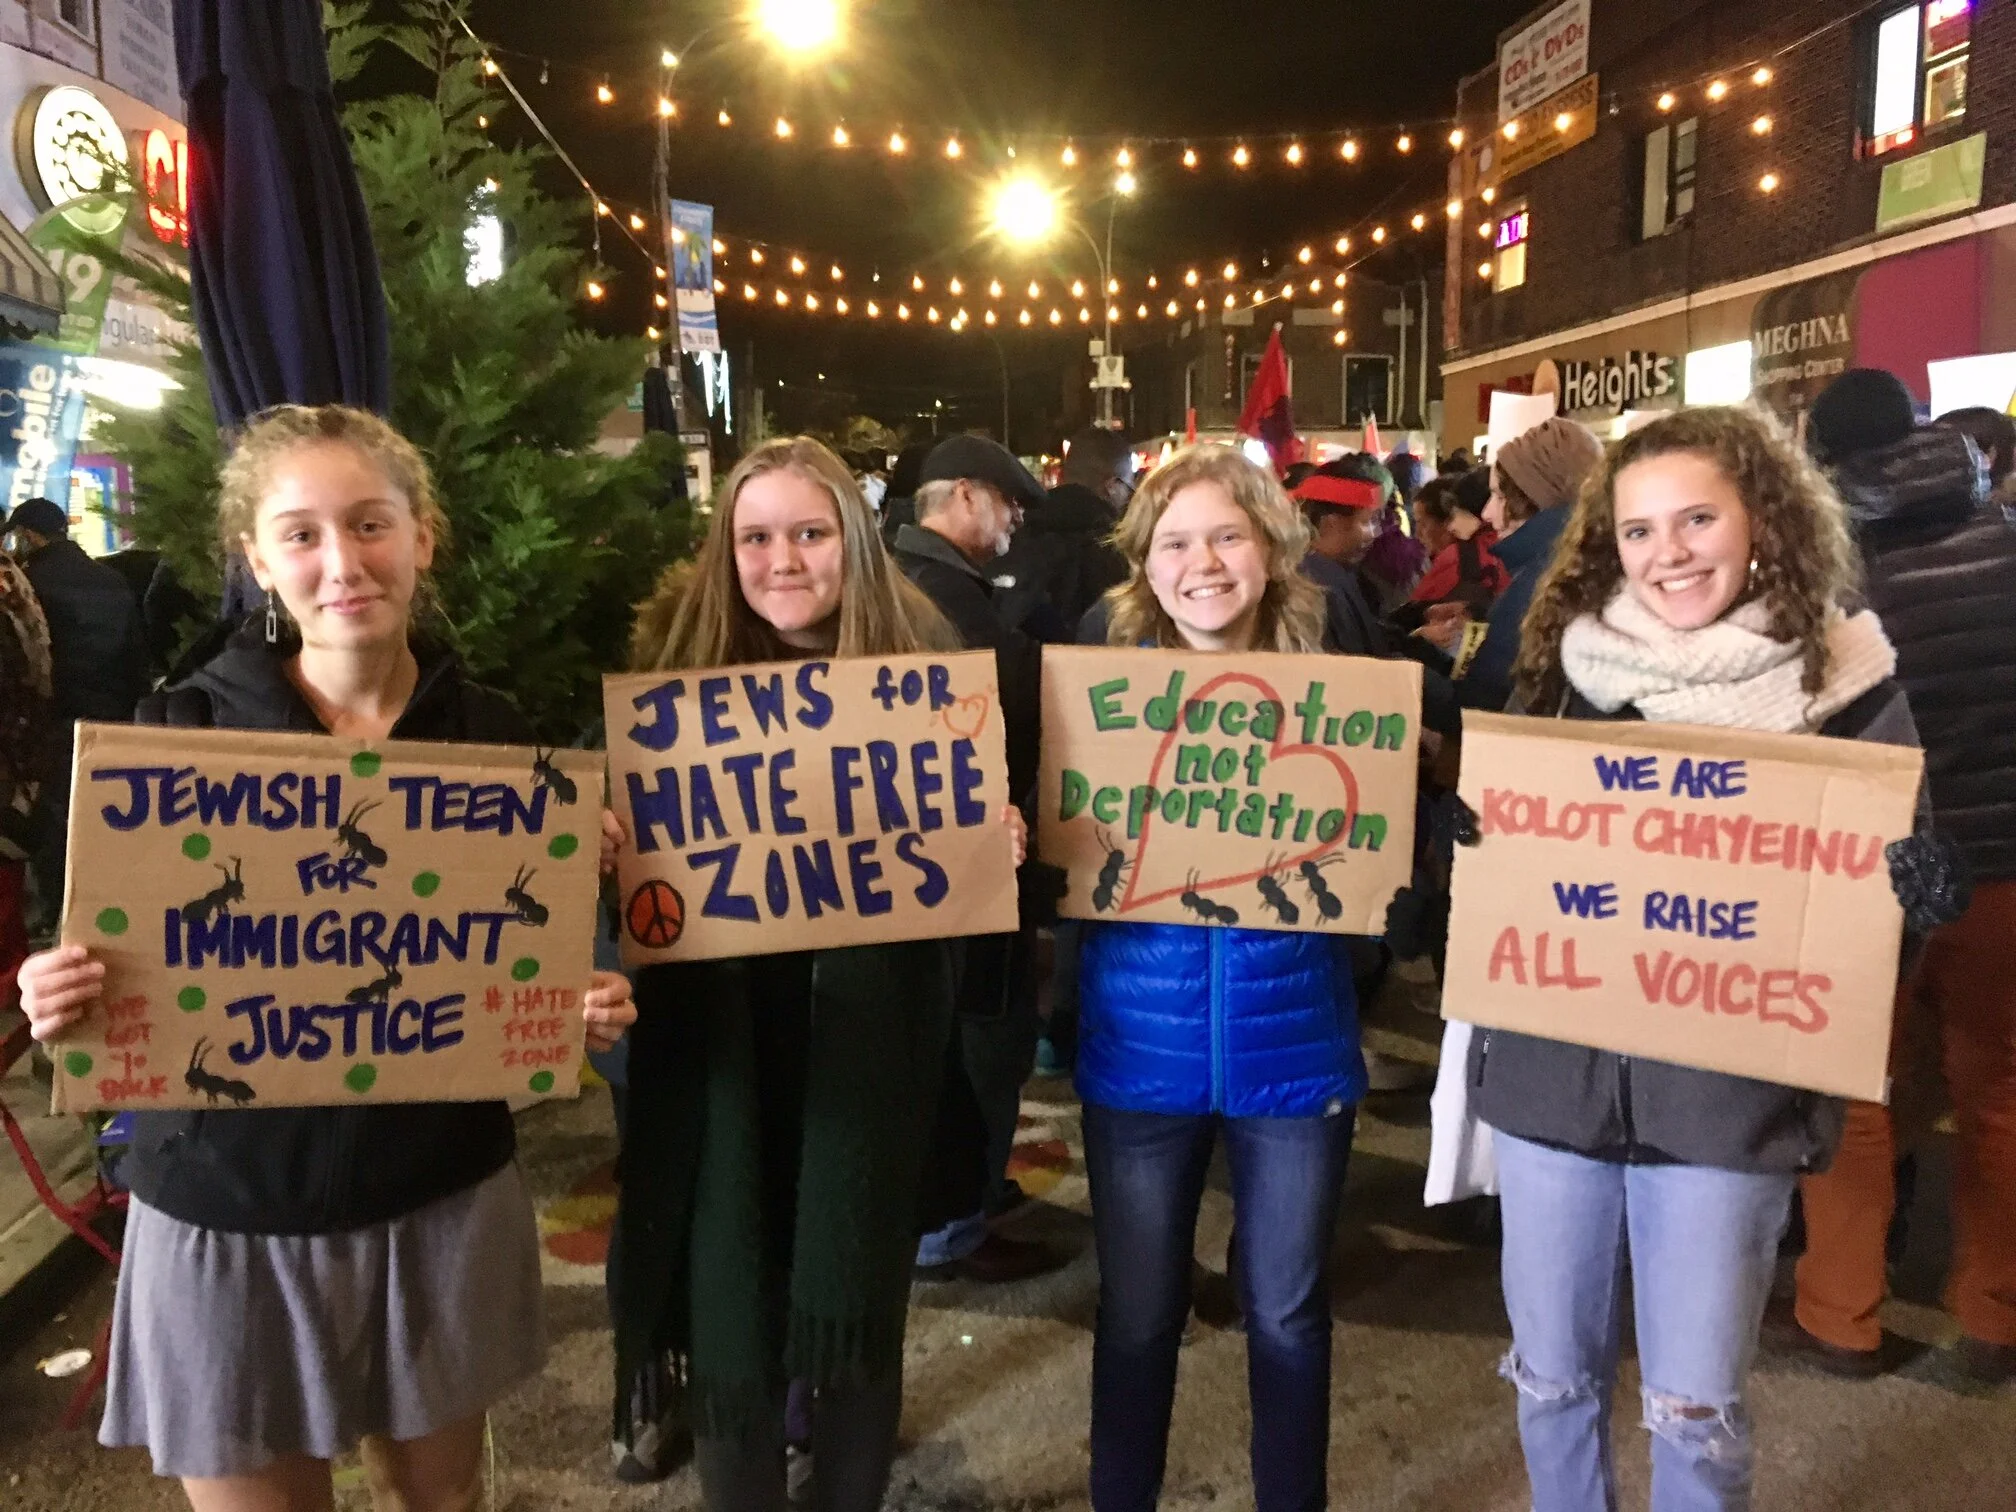 JEWISH TEEN
FOR
IMMIGRANT
JUSTICE
WE
GOT
YO
BACK
# HATE
FREE
ZONE
JEWS for
HATE FREE
ZONES
Education
not
Deportation
WE ARE
KOLOT CHAYEINU
WE RAISE
ALL VOICES
CDs & DVDs
Heights
MEGHNA
SHOPPING CENTER
mobile
19